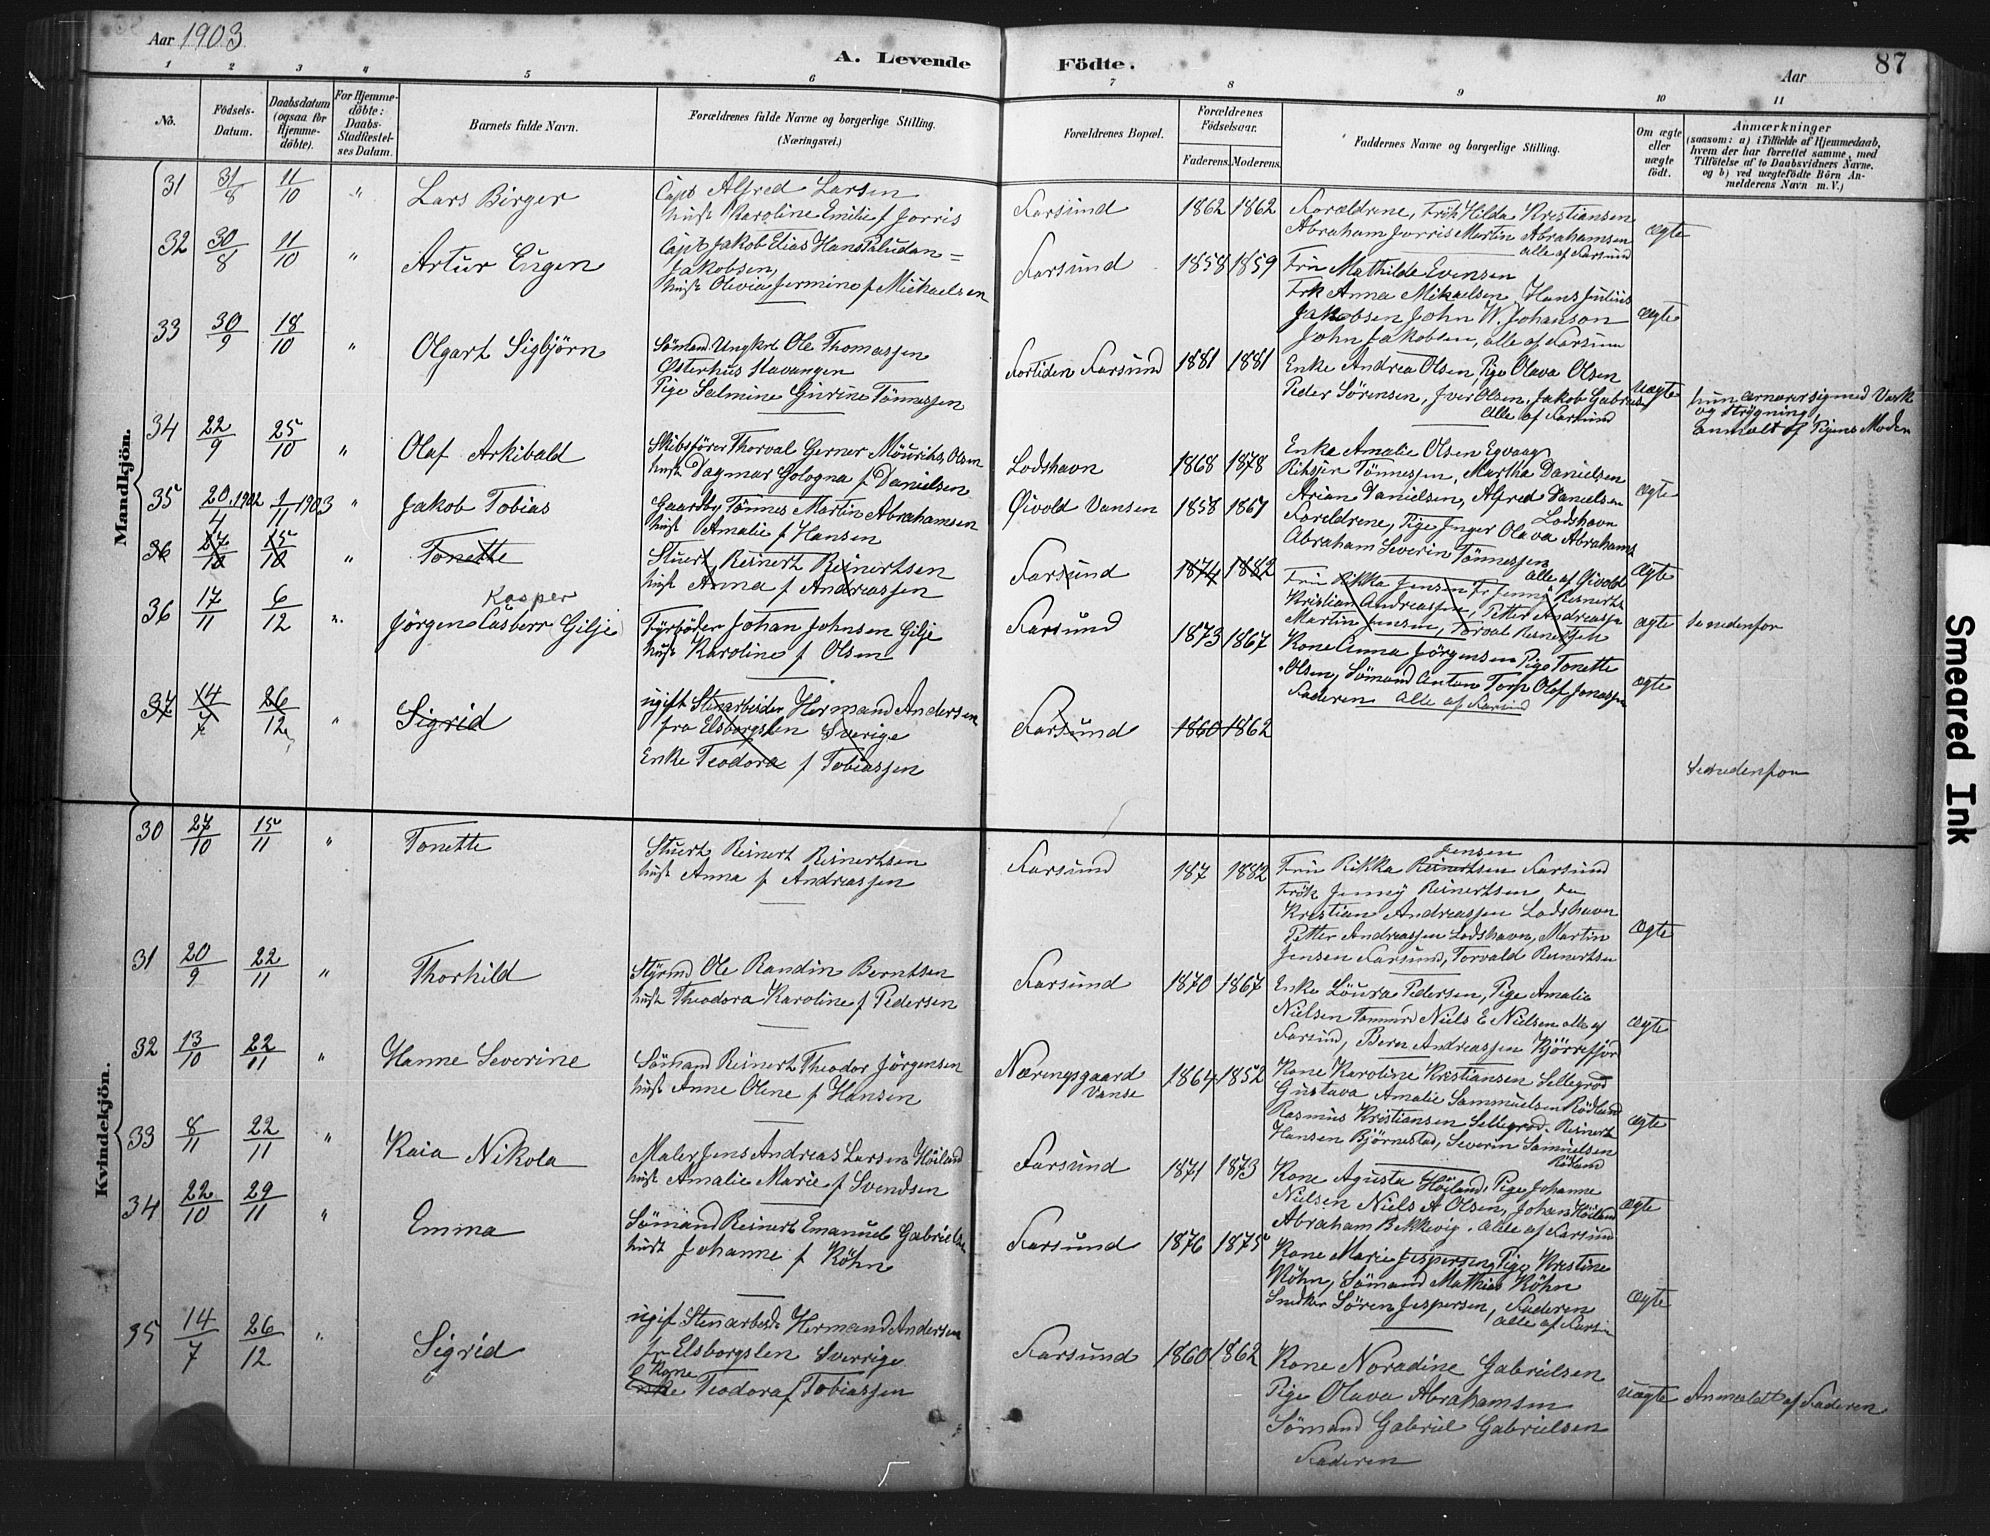 Aar 1903
A. Levende Födte.
Aar
87
1 2 3 4 5 6 7 8 9 10 11
No.
Födsels-Datum.
Daabsdatum (ogsaa for Hjemme-döbte).
For Hjemme-döbte: Daabs-Stadfæstel-ses Datum.
Barnets fulde Navn.
Forældrenes fulde Navne og borgerlige Stilling.
(Næringsvei.)
Forældrenes Bopæl.
Forældrenes Födselsaar.
Faderens. Moderens.
Faddernes Navne og borgerlige Stilling.
Om ægte eller uægte födt.
Anmærkninger
(saasom: a) i Tilfælde af Hjemmedaab, hvem der har forrettet samme, med Tilföielse af to Daabsvidners Navne. og b) ved uægtefödte Börn An-melderens Navn m. V.)
Mandkjön.
31 31/8 11/10 " Lars Birger
Capt Alfred Larsen
hust Karoline Emilie f Jorris
Farsund 1862 1862
Forældrene, Frök Hilda Kristiansen
Abraham Jorris Martin Abrahamsen
alle af Farsund
Ægte
32 30/8 11/10 " Artur Eugen
Capt Jakob Elias Hans Paludan=
Jakobsen,
hust Olivia Jermine f Michaelsen
Farsund 1858 1859
Fru Mathilde Evensen
Frk Anna Mikaelsen, Hans Julius
Jakobsen John W. Johanson
John Jakobsen, alle af Farsun
Ægte
33 30/9 18/10 " Olgart Sigbjörn
Sömand Ungkrl Ole Thomassen
Østerhus Stavanger
Pige Salmine Gurine Tönnessen
Fortiden Farsund 1881 1881
Enke Andrea Olsen, Pige Olava Olsen
Peder Sörensen, Iver Olsen, Jakob Gabriels
Alle af Farsund
Uægte
hun ernærer sig med Vask
og Strygning,
anmeldt af Pigens Moder
34 22/9 25/10 " Olaf Arkibald
Skibsförer Thorval Gerner Möurits Olsen
hust Dagmar Gologna f Danielsen
Lodshavn 1868 1878
Enke Amalie Olsen Egvaag
Rikser Tönnessen, Martha Danielsen
Arian Danielsen, Alfred Danielsen
Lodshavn
Ægte
35 20/4 1902 1/11 1903 " Jakob Tobias
Gaardby Tönnes Martin Abrahamsen
hust Amalie f Hansen
Øivold Vansen 1858 1867
Foreldrene, Pige Inger Olava Abrahams
Abraham Severin Tönnessen
alle af Öivold
Ægte
36 27/10 15/10 " Tonette
Stuert Reinert Reinertsen
hust Anna f Andreassen
Farsund 1874 1882
Fru Rikka Jensen Fr Jenny Reinerts
Kristian Andreassen, Petter Andreasse
Martin Jensen, Torval Reinertsen
Ægte
se nedenfor
36 17/11 6/12 " Jörgen Casberr Gilje
Kasper
Fyrböder Johan Johnsen Gilje
hust Karoline f Olsen
Farsund 1873 1867
Kone Anna Jörgensen Pige Tonette
Olsen, Sömand Anton Torp Olaf Jonassen
Faderen alle af Farsund
Ægte
37 14/7 26/12 " Sigrid
ugift Stenarbeider Hermand Andersen
fra Elsborgslen Sverige
Enke Teodora f Tobiassen
Farsund 1860 1862
Se nedenfor
Kvindekjön.
30 27/10 15/11 " Tonette
Stuert Reinert Reinertsen
hust Anna f Andreassen
Farsund 187 1882
Jensen
Fru Rikka Reinertsen Farsund
Frök Jenny Reinertsen
Kristian Andreassen Lodshavn
Petter Andreassen Lodshavn, Martin
Jensen Farsund, Torvald Reinertsen
Ægte
31 20/9 22/11 " Thorhild
Styrmd Ole Randin Berntsen
hust Theodora Karoline f Pedersen
Farsund 1870 1867
Enke Löura Pedersen, Pige Amalie
Nielsen Tømmrd Niels E Nielsen alle af
Farsund, Bern Andreassen Kjörrefjor
Ægte
32 13/10 22/11 " Hanne Severine
Sömand Reinert Theodor Jörgensen
hust Anne Oline f Hansen
Næringsgaard
Vanse
1864 1852
Kone Karoline Kristiansen Sellegrod
Gustava Amalie Sammuelsen Rödland
Rasmus Kristiansen Sellegrod. Reinert
Hansen Björnestad, Severin Samuelsen
Rödland
Ægte
33 8/11 22/11 " Kaia Nikola
Maler Jens Andreas Larsen Höiland
hust Amalie Marie f Svendsen
Farsund 1871 1873
Kone Agusta Höiland, Pige Johanne
Nielsen Niels A Olsen, Johan Höiland
Abraham Bekkevig. alle af Farsund
Ægte
34 22/10 29/11 " Emma
Sömand Reinert Emanuel Gabrielsen
hust Johanne f Röhn
Farsund 1876 1875
Kone Marie Jespersen, Pige Kristine
Röhn, Sömand Mathias Röhn
Snedker Sören Jespersen, Faderen
alle af Farsun
Ægte
35 14/7 26/12 " Sigrid
ugif Stenarbeid Hermand Andersen
fr Elsborgslen Sverrige
Kone
Enke Teodora f Tobiassen
Farsund 1860 1862
Kone Noradine Gabrielsen
Pige Olava Abrahamsen
Sömand Gabriel Gabrielsen
Faderen
uægte
Anmeldt af Faderen
Smeared Ink